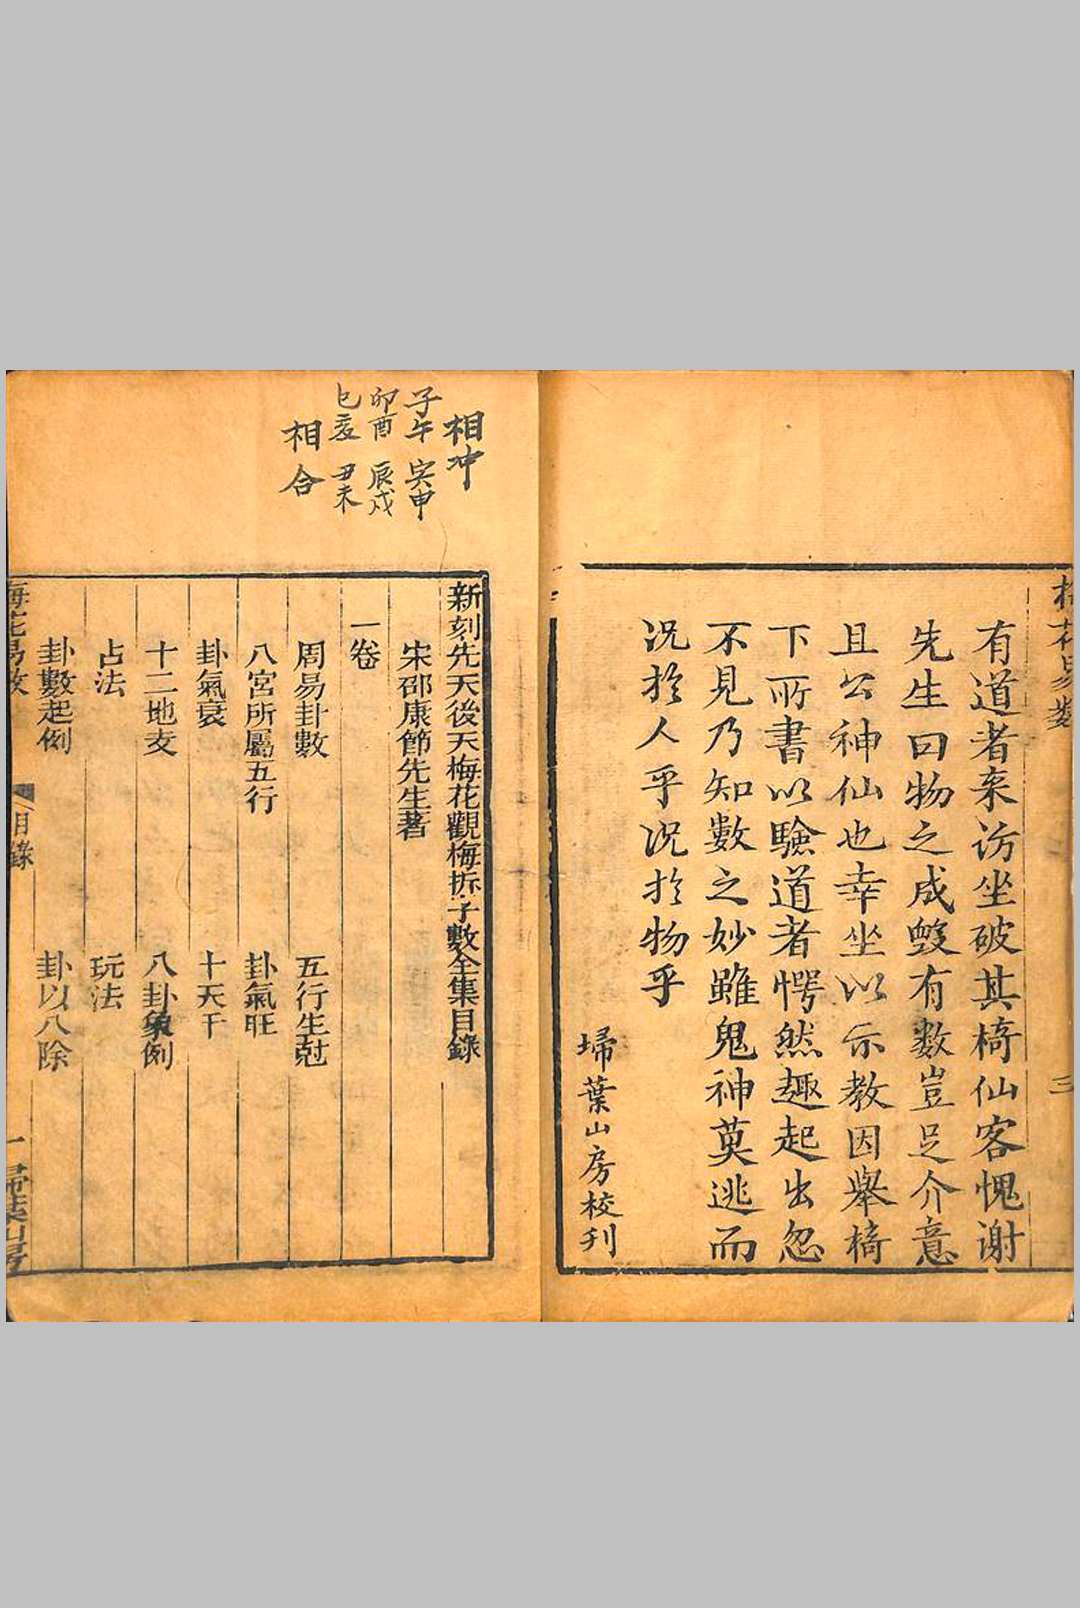 梅花易數
三
有道者來访坐破其椅仙客愧谢
先生曰物之成毀有数豈足介意
且公神仙也幸坐以示教因舉椅
下所書以驗道者愕然趣起出忽
不見乃知數之妙雖鬼神莫逃而
況扵人乎況扵物乎
埽葉山房校刋
相冲
子午 寅申
卯酉 辰戍
巳亥 丑未
相合
新刻先天後天梅花觀梅拆字數全集目錄
宋邵康節先生著
一卷
周易卦數 五行生尅
八宮所屬五行 卦氣旺
卦氣衰 十天干
十二地支 八卦象例
占法 玩法
卦數起例 卦以八除
梅花易數 目錄 一 埽葉山房